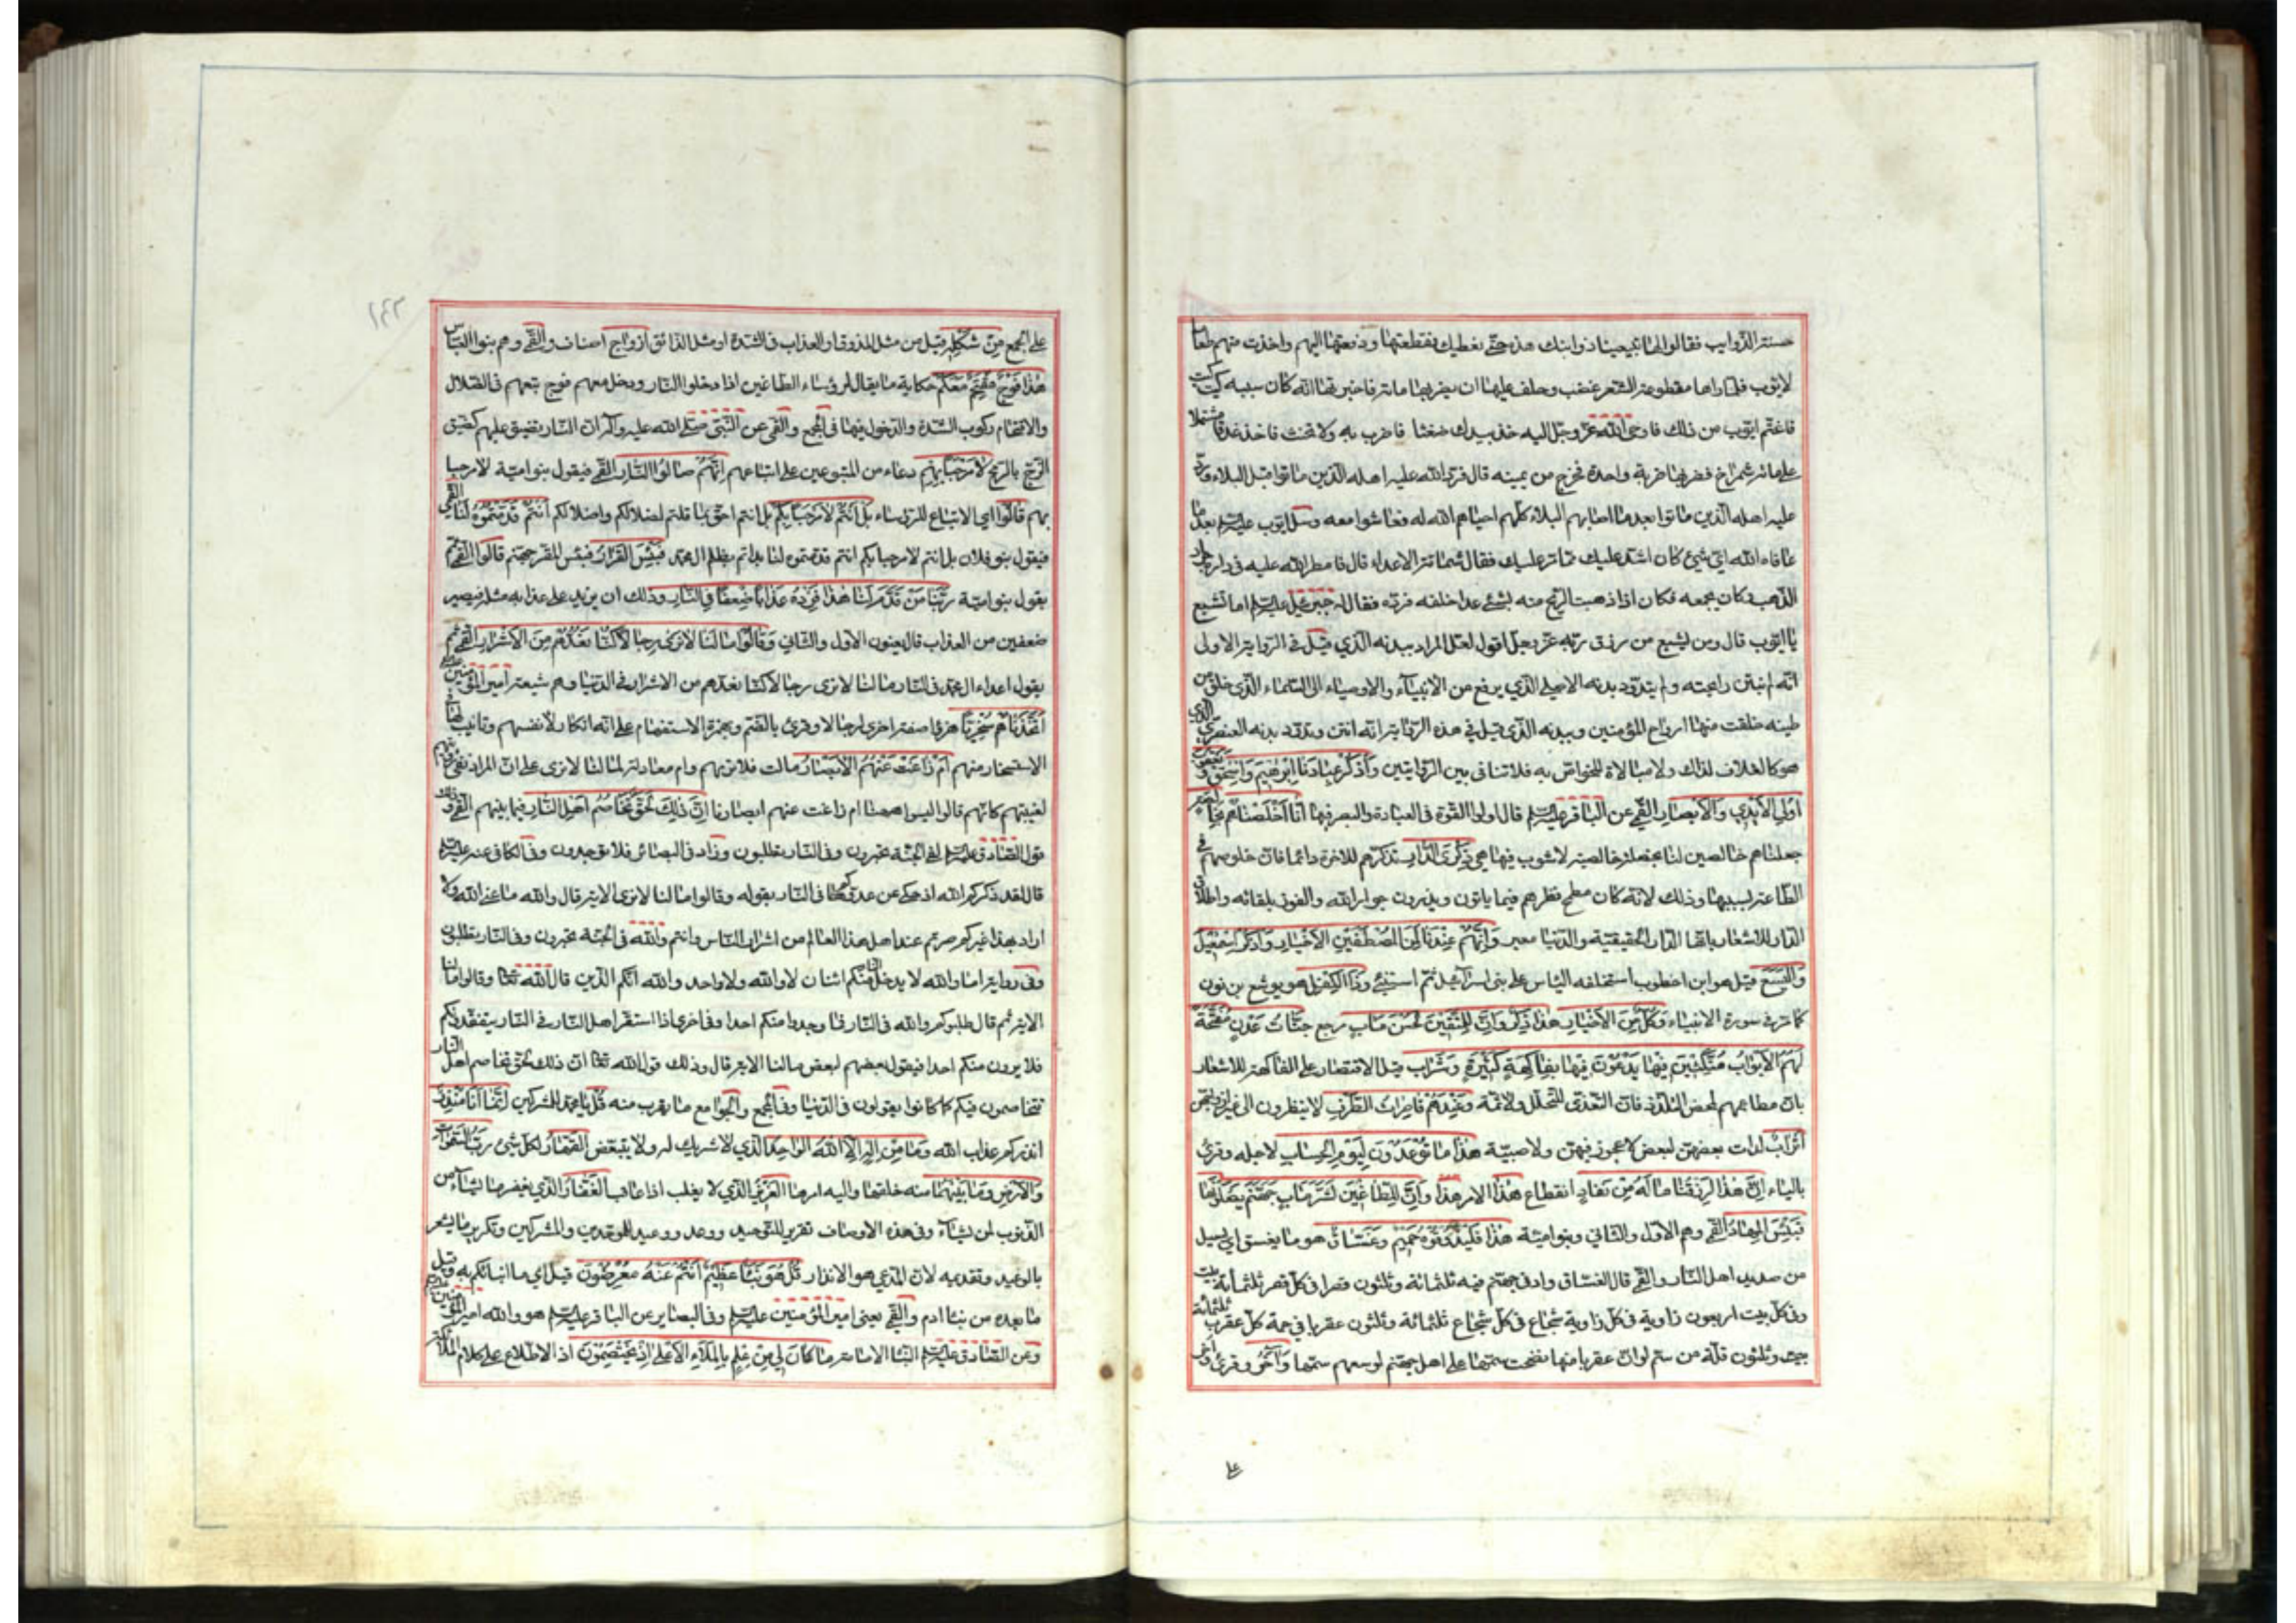 حسنة الذوائب فقالوا لها تبيعينا ذوابتك هذه حتى نعطيك فقطعتها ودفعتها اليهم واخذت منهم طعاما
لايوب فلما راها مقطوعة الشعر غضب وحلف عليها ان يضربها مائة فاخبرته انه كان سببه كيت كيت
فاغتم ايوب من ذلك فاوحى الله عز وجل اليه خذ بيدك ضغثا فاضرب به ولا تحنث فاخذ عذقا مشتملا
على مائة شمراخ فضربها ضربة واحدة فخرج من يمينه قال فرد الله عليه اهله الذين ماتوا قبل البلاء ورد
عليه اهله الذين ماتوا بعد ما اصابهم البلاء كلهم احياهم الله له فعاشوا معه وسئل ايوب عليه السلم بعد ما
عافاه الله اي شيئ كان اشد عليك مما مر عليك فقال شماتة الاعداء قال فامطر الله عليه في داره جراد
الذهب وكان يجمعه فكان اذا ذهبت الريح منه بشيئ عدا خلفه فرده فقال له جبرئيل عليه السلم اما تشبع
يا ايوب قال ومن يشبع من رزق ربه عز وجل اقول لعل المراد ببدنه الذي قيل في الرواية الاولى
انه لم ينتن رايحته ولم يتدود بدنه الاصلي الذي يرفع من الانبياء والاوصياء الى السماء الذي خلق من
طينة خلقت منها ارواح المؤمنين وببدنه الذي قيل في هذه الرواية انه انتن وتدود بدنه العنصري الذي
هو كالغلاف لذلك ولا مبالاة للخواص به فلا تنافي بين الروايتين واذكر عبادنا ابرهيم واسحق ويعقوب
اولي الايدي والابصار القمي عن الباقر عليه السلم قال اولوا القوة في العبادة والبصر فيها انا اخلصناهم بخالصة
جعلناهم خالصين لنا بخصلة خالصة لا شوب فيها هي ذكرى الدار تذكرهم للاخرة دائما فان خلوصهم في
الطاعة بسببها وذلك لانه كان مطمح نظرهم فيما ياتون ويذرون جوار الله والفوز بلقائه واطلاق
الدار للاشعار بانها الدار الحقيقية والدنيا معبر وانهم عندنا لمن المصطفين الاخيار واذكر اسمعيل
واليسع قيل هو ابن اخطوب استخلفه الياس على بني اسرائيل ثم استنبئ وذا الكفل هو يوشع بن نون
كما مر في سورة الانبياء وكل من الاخيار هذا ذكر وان للمتقين لحسن ماب مرجع جنات عدن مفتحة
لهم الابواب متكئين فيها يدعون فيها بفاكهة كثيرة وشراب قيل الاقتصار على الفاكهة للاشعار
بان مطاعمهم لمحض التلذذ فان التغذي للتحلل ولا ثمة وعندهم قاصرات الطرف لا ينظرون الى غير ازواجهن
اتراب لدات بعضهن لبعض لا عجوز فيهن ولا صبية هذا ما توعدون ليوم الحساب لاجله وقرئ
بالياء ان هذا لرزقنا ما له من نفاد انقطاع هذا الامر هذا وان للطاغين لشر ماب جهنم يصلونها
فبئس المهاد القمي وهم الاول والثاني وبنو امية هذا فليذوقوه حميم وغساق هو ما يغسق اي يسيل
من صديد اهل النار والقمي قال الغساق واد في جهنم فيه ثلثمائة وثلثون قصرا في كل قصر ثلثمائة بيت
وفي كل بيت اربعون زاوية في كل زاوية شجاع في كل شجاع ثلثمائة وثلثون عقربا في حمة كل عقرب ثلثمائة
وثلثون قلة من سم لو ان عقربا منها نفخت سمها على اهل جهنم لوسعهم سمها واخر وقرئ واخر
على
١٤٢
على الجمع من شكله قيل من مثل المذوق او العذاب في الشدة او مثل الذائق ازواج اصناف والقمي وهم بنوا العباس
هذا فوج مقتحم معكم حكاية ما يقال لرؤساء الطاغين اذا دخلوا النار ودخل معهم فوج تبعهم في الضلال
والاقتحام ركوب الشدة والدخول فيها في المجمع والقمي عن النبي صلى الله عليه وآله ان النار تضيق عليهم كضيق
الزج بالرمح لا مرحبا بهم دعاء من المتبوعين على اتباعهم انهم صالوا النار القمي فيقول بنو امية لا مرحبا
بهم قالوا اي الاتباع للرؤساء بل انتم لا مرحبا بكم بل انتم احق بما قلتم لضلالكم واضلالكم انتم قدمتموه لنا القمي
فيقول بنو فلان بل انتم لا مرحبا بكم انتم قدمتموه لنا بداتم بظلم ال محمد فبئس القرار فبئس المقر جهنم قالوا القمي ثم
يقول بنو امية ربنا من قدم لنا هذا فزده عذابا ضعفا في النار وذلك ان يزيد على عذابه مثله فيصير
ضعفين من العذاب قال يعنون الاول والثاني وقالوا ما لنا لا نرى رجالا كنا نعدهم من الاشرار القمي ثم
يقول اعداء ال محمد في النار ما لنا لا نرى رجالا كنا نعدهم من الاشرار في الدنيا وهم شيعة امير المؤمنين عليه السلم
اتخذناهم سخريا هزؤا صفة اخرى لرجالا وقرئ بالضم وبهمزة الاستفهام على انه انكار لانفسهم وتانيب لها في
الاستسخار منهم ام زاغت عنهم الابصار مالت فلا نريهم وام معادلة لما لنا لا نرى على ان المراد نفي رؤيتهم
لغيبتهم كانهم قالوا اليسوا ههنا ام زاغت عنهم ابصارنا ان ذلك لحق تخاصم اهل النار فيما بينهم القمي وذلك
قول الصادق عليه السلم لفي الجنة تحبرون وفي النار تطلبون وزاد في البصائر فلا توجدون وفي الكافي عنه عليه السلم
قال لقد ذكركم الله اذ حكى عن عدوكم في النار بقوله وقالوا ما لنا لا نرى الاية قال والله ما عنى الله ولا
اراد بهذا غيركم صرتم عند اهل هذا العالم من اشرار الناس وانتم والله في الجنة تحبرون وفي النار تطلبون
وفي رواية اما والله لا يدخل النار منكم اثنان لا والله ولا واحد والله انكم الذين قال الله تعا وقالوا ما لنا
الاية ثم قال طلبوكم والله في النار فما وجدوا منكم احدا وفي اخرى اذا استقر اهل النار في النار يتفقدونكم
فلا يرون منكم احدا فيقول بعضهم لبعض ما لنا الاية قال وذلك قول الله تعا ان ذلك لحق تخاصم اهل النار
يتخاصمون فيكم كما كانوا يقولون في الدنيا وفي المجمع والجوامع ما يقرب منه قل يا محمد للمشركين انما انا منذر
انذركم عذاب الله وما من اله الا الله الواحد الذي لا شريك له ولا يتبعض القهار لكل شيئ رب السموات
والارض وما بينهما منه خلقها واليه امرها العزيز الذي لا يغلب اذا عاقب الغفار الذي يغفر ما يشاء من
الذنوب لمن يشاء وفي هذه الاوصاف تقرير للتوحيد ووعد ووعيد للموحدين والمشركين وتكرير ما يشعر
بالوعيد وتقديمه لان المدعى هو الانذار قل هو نبأ عظيم انتم عنه معرضون قيل اي ما انباتكم به وقيل
ما بعده من نبا ادم والقمي يعني امير المؤمنين عليه السلم وفي البصاير عن الباقر عليه السلم هو والله امير المؤمنين عليه السلم
وعن الصادق عليه السلم النبا الامامة ما كان لي من علم بالملاء الاعلى اذ يختصمون اذ الاطلاع على كلام الملائكة